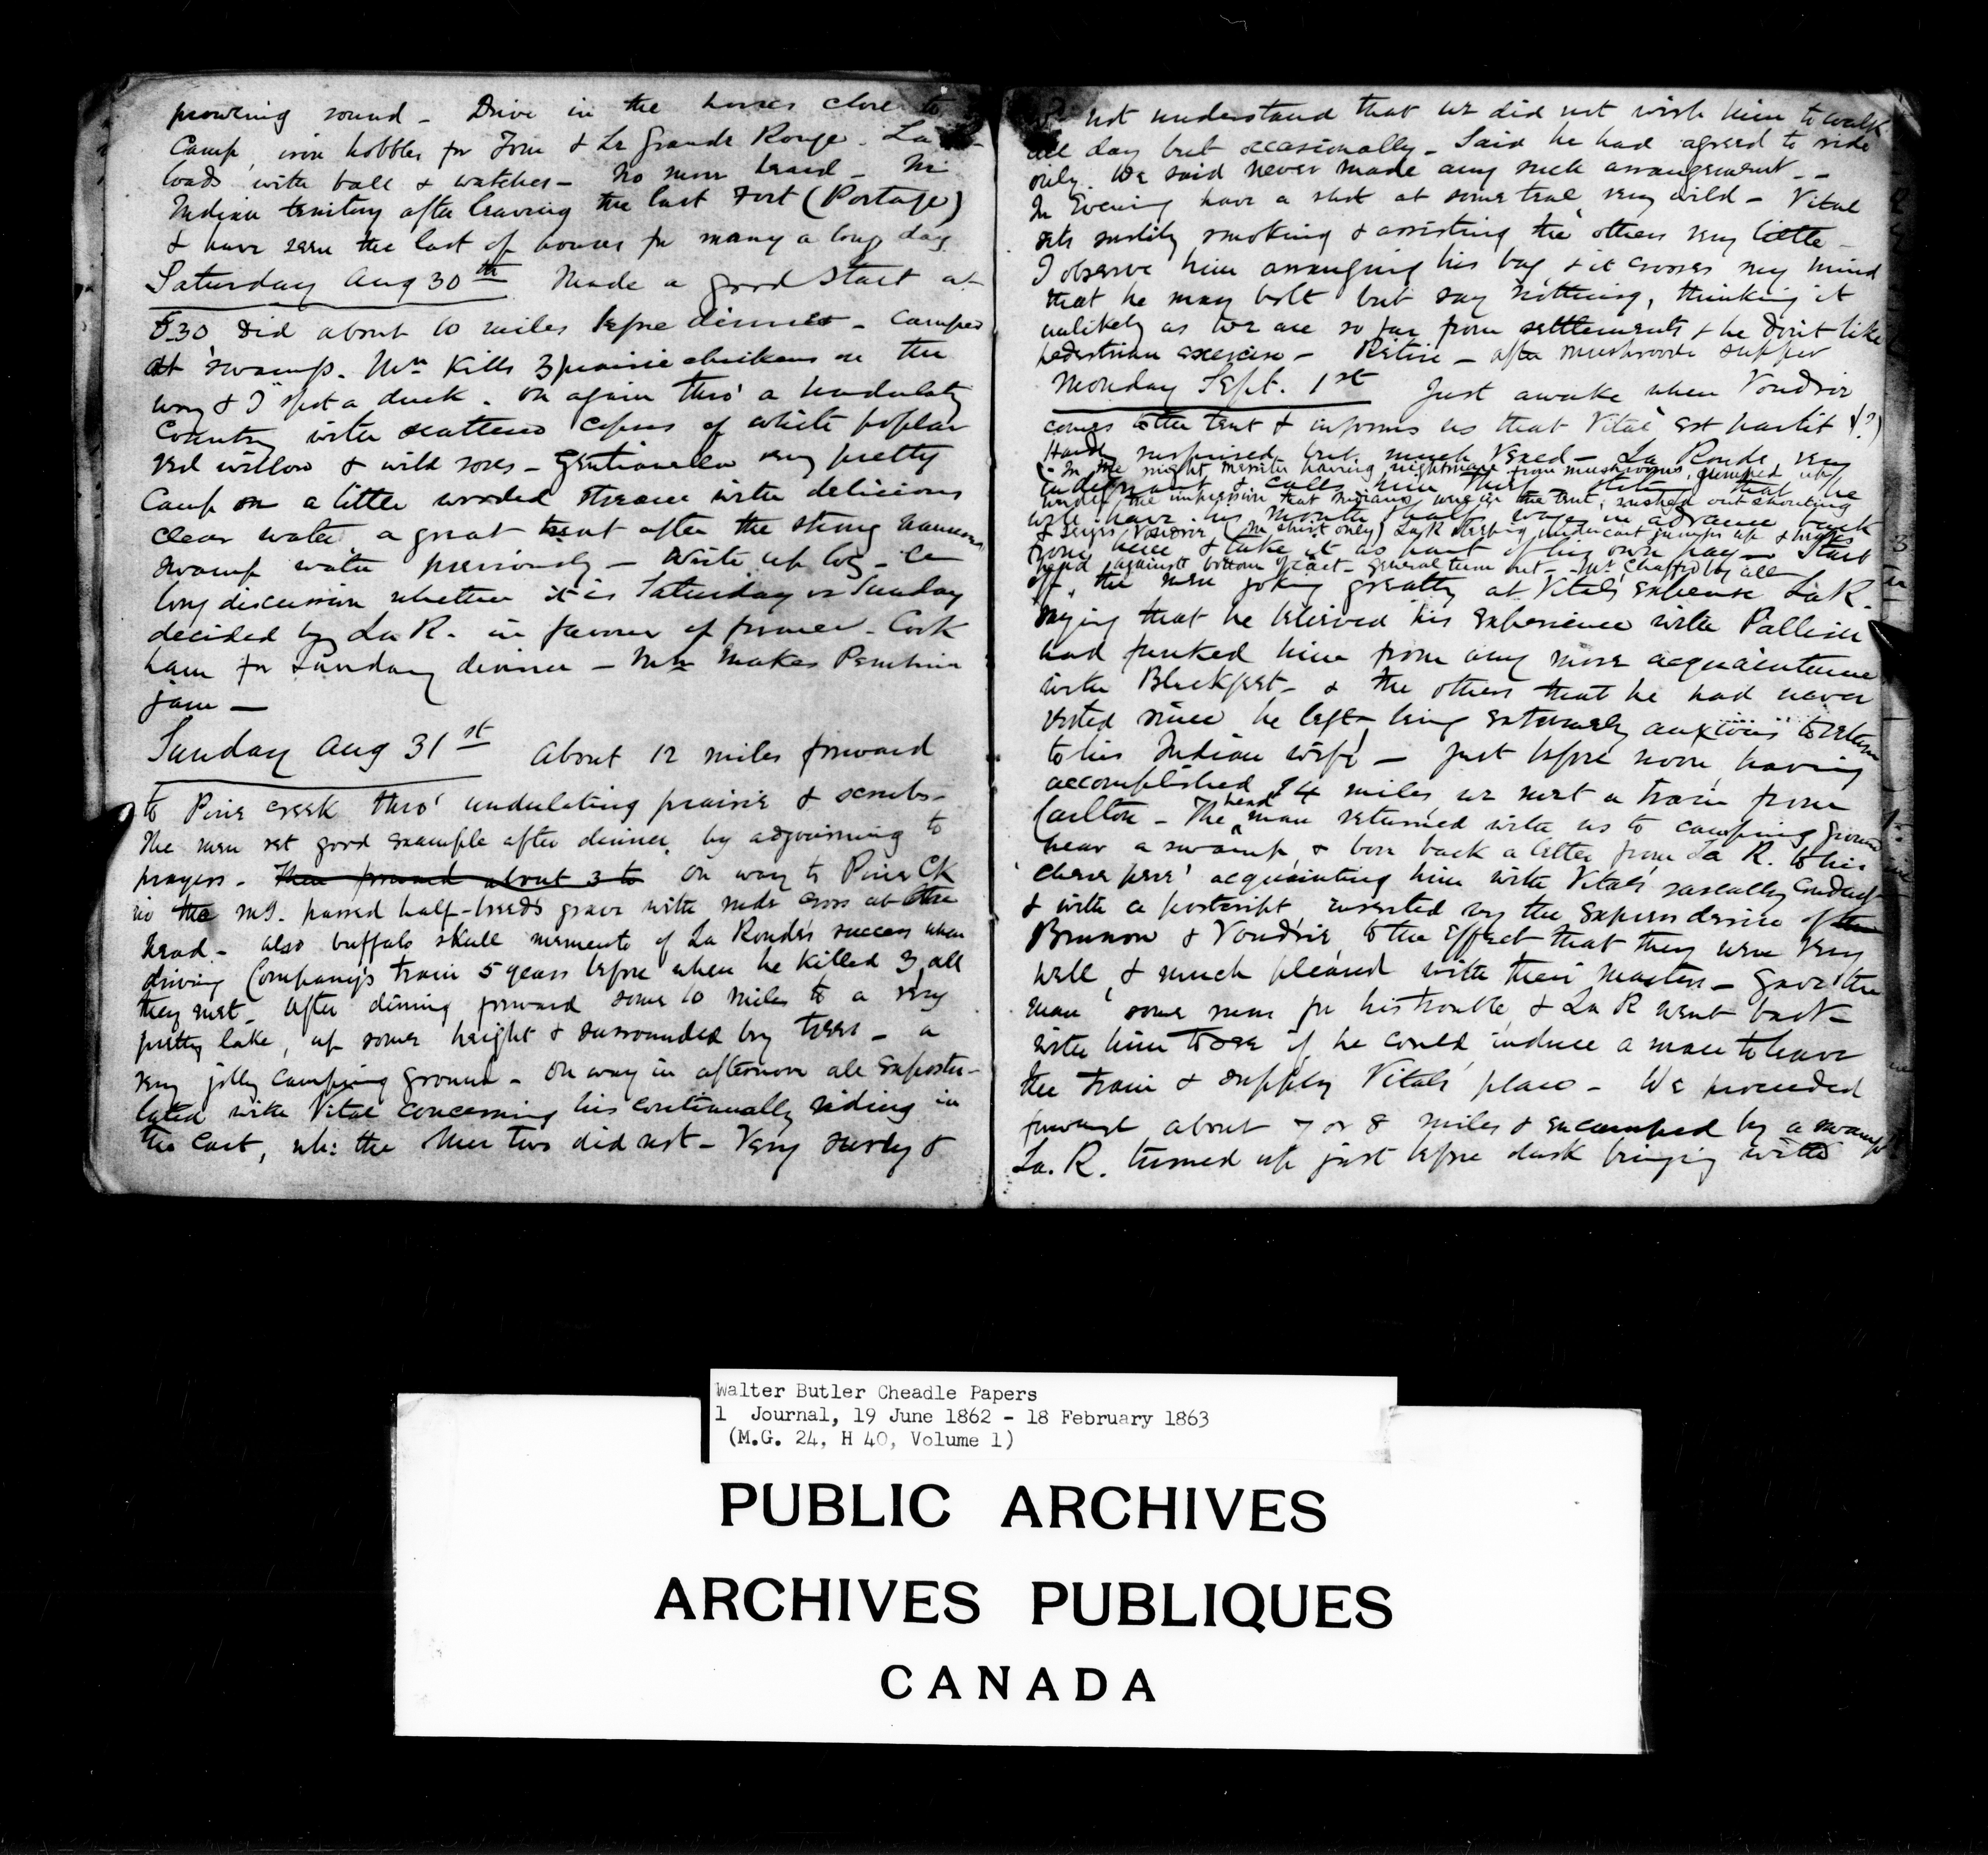 prowling round - Drive in the horses close to
Camp, iron hobbles for Tom & Le Grande Rouge. La R.
loads with ball & watches - No more heard - In
Indian territory after leaving the last Fort (Portage)
& have seen the last of houses for many a long day
Saturday Aug 30th Made a good start at
5.30 Did about 10 miles before dinner - Camped
at swamp. Mn Kills 3 prairie chickens on the
way & I spot a duck. On again thro' a undulatg
country with scattered copses of white poplar
red willow & wild roses - Gentianella very pretty
Camp on a little wooded stream with delicious
clear water a great treat after the strong
swamp water previously - Write up log - a
long discussion whether it is Saturday or Sunday
decided by La R. in favour of former. Cook
ham for Sunday dinner - Mn makes Pembina
jam -
Sunday Aug 31st About 12 miles forward
to Pine creek thro' undulating prairie & scrub -
The men set good example after dinner by adjourning to
prayers. Then forward about 3 to On way to Pine Ck
in the mg. passed half-breeds grave with rude cross at the
head - also buffalo skull memento of La Ronde's success when
driving Company's train 5 years before when he killed 3, all
they met. After dining forward some 10 miles to a very
pretty lake, up some height & surrounded by trees - a
very jolly camping ground - On way in afternoon all expostu-
lated with Vital concerning his continually riding in
the cart, wh: the other two did not - Very surly &
not understand that we did not wish him to walk
all day but occasionally - Said he had agreed to ride
only. We said never made any such arrangement --
In Evening have a shot at some teal very wild - Vital
sits sulkily smoking & assisting the others very little -
I observe him arranging his bag & it crosses my mind
that he may bolt but say nothing, thinking it
unlikely as we are so far from settlements & he don't like
pedestrian exercise - Retire - after mushroom supper
Monday Sept. 1st Just awake when Voudrie
comes to the tent & informs us that Vital est partit (?)
Hardly surprised but much vexed - La Ronde very
(- In the night Messiter having nightmare from mushrooms, jumped up
indignant & calls him Thief that he
under the impression that Indians were in the tent, rushed out shouting
will have his month's half wage in advance back
& seizes Voudrie (in shirt only) La R sleeping under cart jumps up & 
from here & take it as part of his own pay - Start
head against bottom of cart - general turn out - Mr chaffed by all
off, the men joking greatly at Vital's expense La R.
saying that he believed his experience with Palliser
had funked him from any more acquaintance
with Blackfeet - & the others that he had never
rested since he left, being extremely anxious to return
to his Indian wife - Just before noon, having
accomplished 24 miles, we met a train from
Carlton - The head man returned with us to camping ground
near a swamp, & bore back a letter from La R. to his
'cher pere' acquainting him with Vital's rascally conduct
& with a postscript inserted by the express desire of
Brunow & Voudrie, to the effect that they were very
well, & much pleased with their masters - Gave the
man some rum for his trouble, & La R went back
with him to see if he could induce a man to leave
the train & supply Vital's place - We proceeded
forward about 7 or 8 miles & encamped by a swamp
La. R. turned up just before dusk bringing with
Walter Butler Cheadle Papers
1 Journal, 19 June 1862 - 18 February 1863
(M.G. 24, H 40, Volume 1)
PUBLIC ARCHIVES
ARCHIVES PUBLIQUES
CANADA